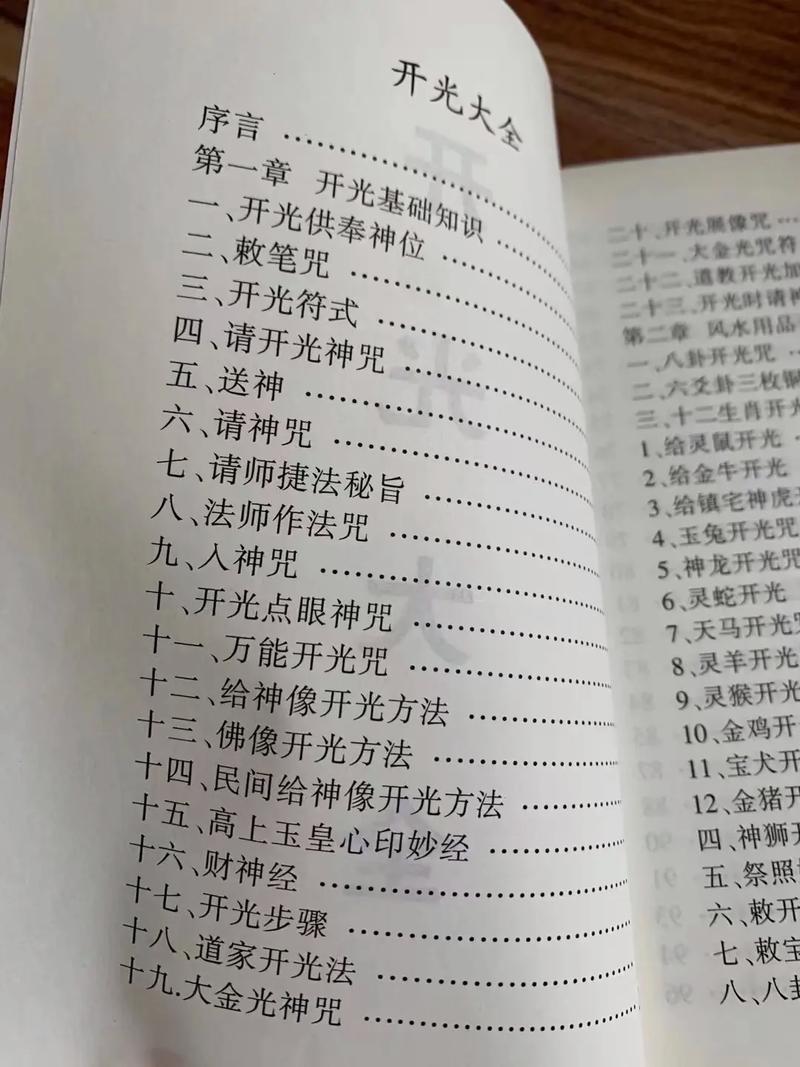 开光大全
序言 ……………………
第一章 开光基础知识 ……
一、开光供奉神位 …………
二、敕笔咒 ………………
三、开光符式 ……………
四、请开光神咒 …………
五、送神 …………………
六、请神咒 ………………
七、请师捷法秘旨 ………
八、法师作法咒 …………
九、入神咒 ………………
十、开光点眼神咒 ………
十一、万能开光咒 ………
十二、给神像开光方法 ……
十三、佛像开光方法 ………
十四、民间给神像开光方法 ……
十五、高上玉皇心印妙经 ……
十六、财神经 ……………
十七、开光步骤 …………
十八、道家开光法 ………
十九.大金光神咒 …………
二十、开光展像咒 …
二十一、大金光咒符
二十二、道教开光加
二十三、开光时请神
第二章 风水用品
一、八卦开光咒 …
二、六爻卦三枚铜
三、十二生肖开光
1、给灵鼠开光
2、给金牛开光
3、给镇宅神虎开
4、玉兔开光咒
5、神龙开光咒
6、灵蛇开光
7、天马开光咒
8、灵羊开光
9、灵猴开光
10、金鸡开
11、宝犬开
12、金猪开
四、神狮开
五、祭照
六、敕开
七、敕宝
八、八卦